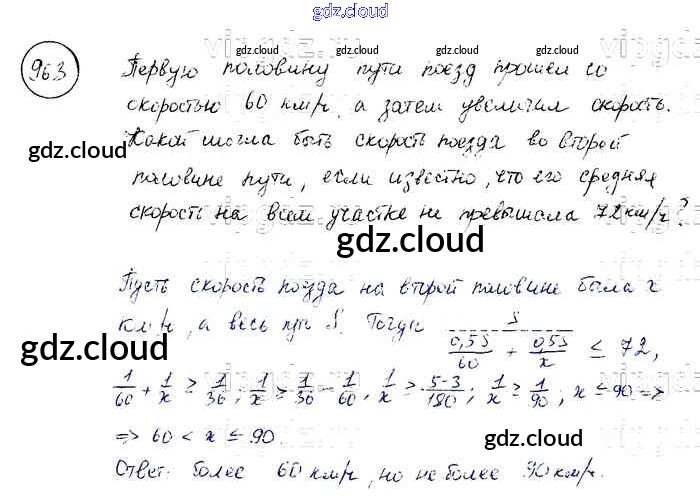 gdz.cloud
963 Первую половину пути поезд прошел со
скоростью 60 км/ч, а затем увеличил скорость.
Какой могла быть скорость поезда во второй
половине пути, если известно, что его средняя
скорость на всем участке не превышала 72 км/ч?
Пусть скорость поезда на второй половине была x
км/ч, а весь путь S. Тогда S / (0,5S/60 + 0,5S/x) ≤ 72,
1/60 + 1/x ≥ 1/36; 1/x ≥ 1/36 - 1/60, 1/x ≥ 5-3/180; 1/x ≥ 1/90; x ≤ 90 =>
=> 60 < x ≤ 90.
Ответ: более 60 км/ч, но не более 90 км/ч.
gdz.cloud
gdz.cloud
gdz.cloud
gdz.cloud
gdz.cloud
gdz.cloud
gdz.cloud
gdz.cloud
gdz.cloud